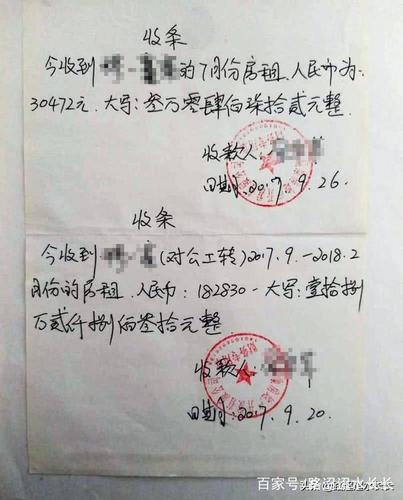 收条
今收到 的7月份房租.人民币为:
30472元.大写:叁万零肆佰柒拾贰元整.
收款人:
日期:2017.9.26.
收条
今收到 (对公工转)2017.9.-2018.2
月份的房租.人民币:182830-大写:壹拾捌
万贰仟捌佰叁拾元整
收款人:
日期:2017.9.20.
百家号/路漫漫水长长